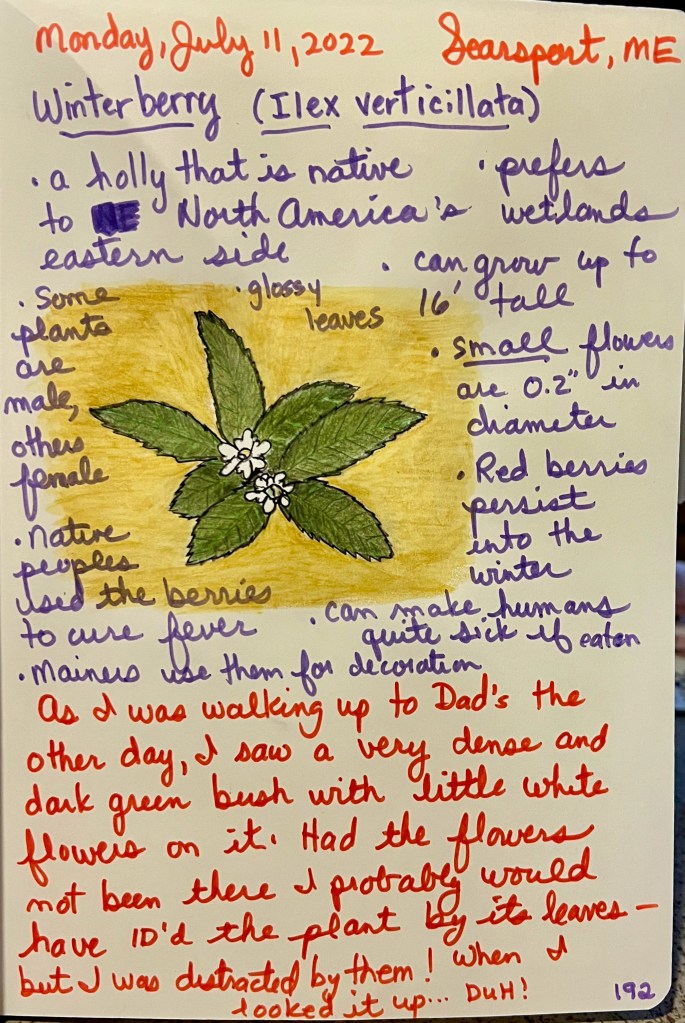 Monday, July 11, 2022 Searsport, ME
Winterberry (Ilex verticillata)
• a holly that is native
to North America's
eastern side
• prefers
wetlands
• can grow up to
16' tall
• glossy
leaves
• Some
plants
are
male,
others
female
• small flowers
are 0.2" in
diameter
• Red berries
persist
into the
winter
• native
peoples
used the berries
to cure fever
• can make humans
quite sick if eaten
• Mainers use them for decoration
As I was walking up to Dad's the
other day, I saw a very dense and
dark green bush with little white
flowers on it. Had the flowers
not been there I probably would
have ID'd the plant by its leaves —
but I was distracted by them! When I
looked it up... DUH!
192